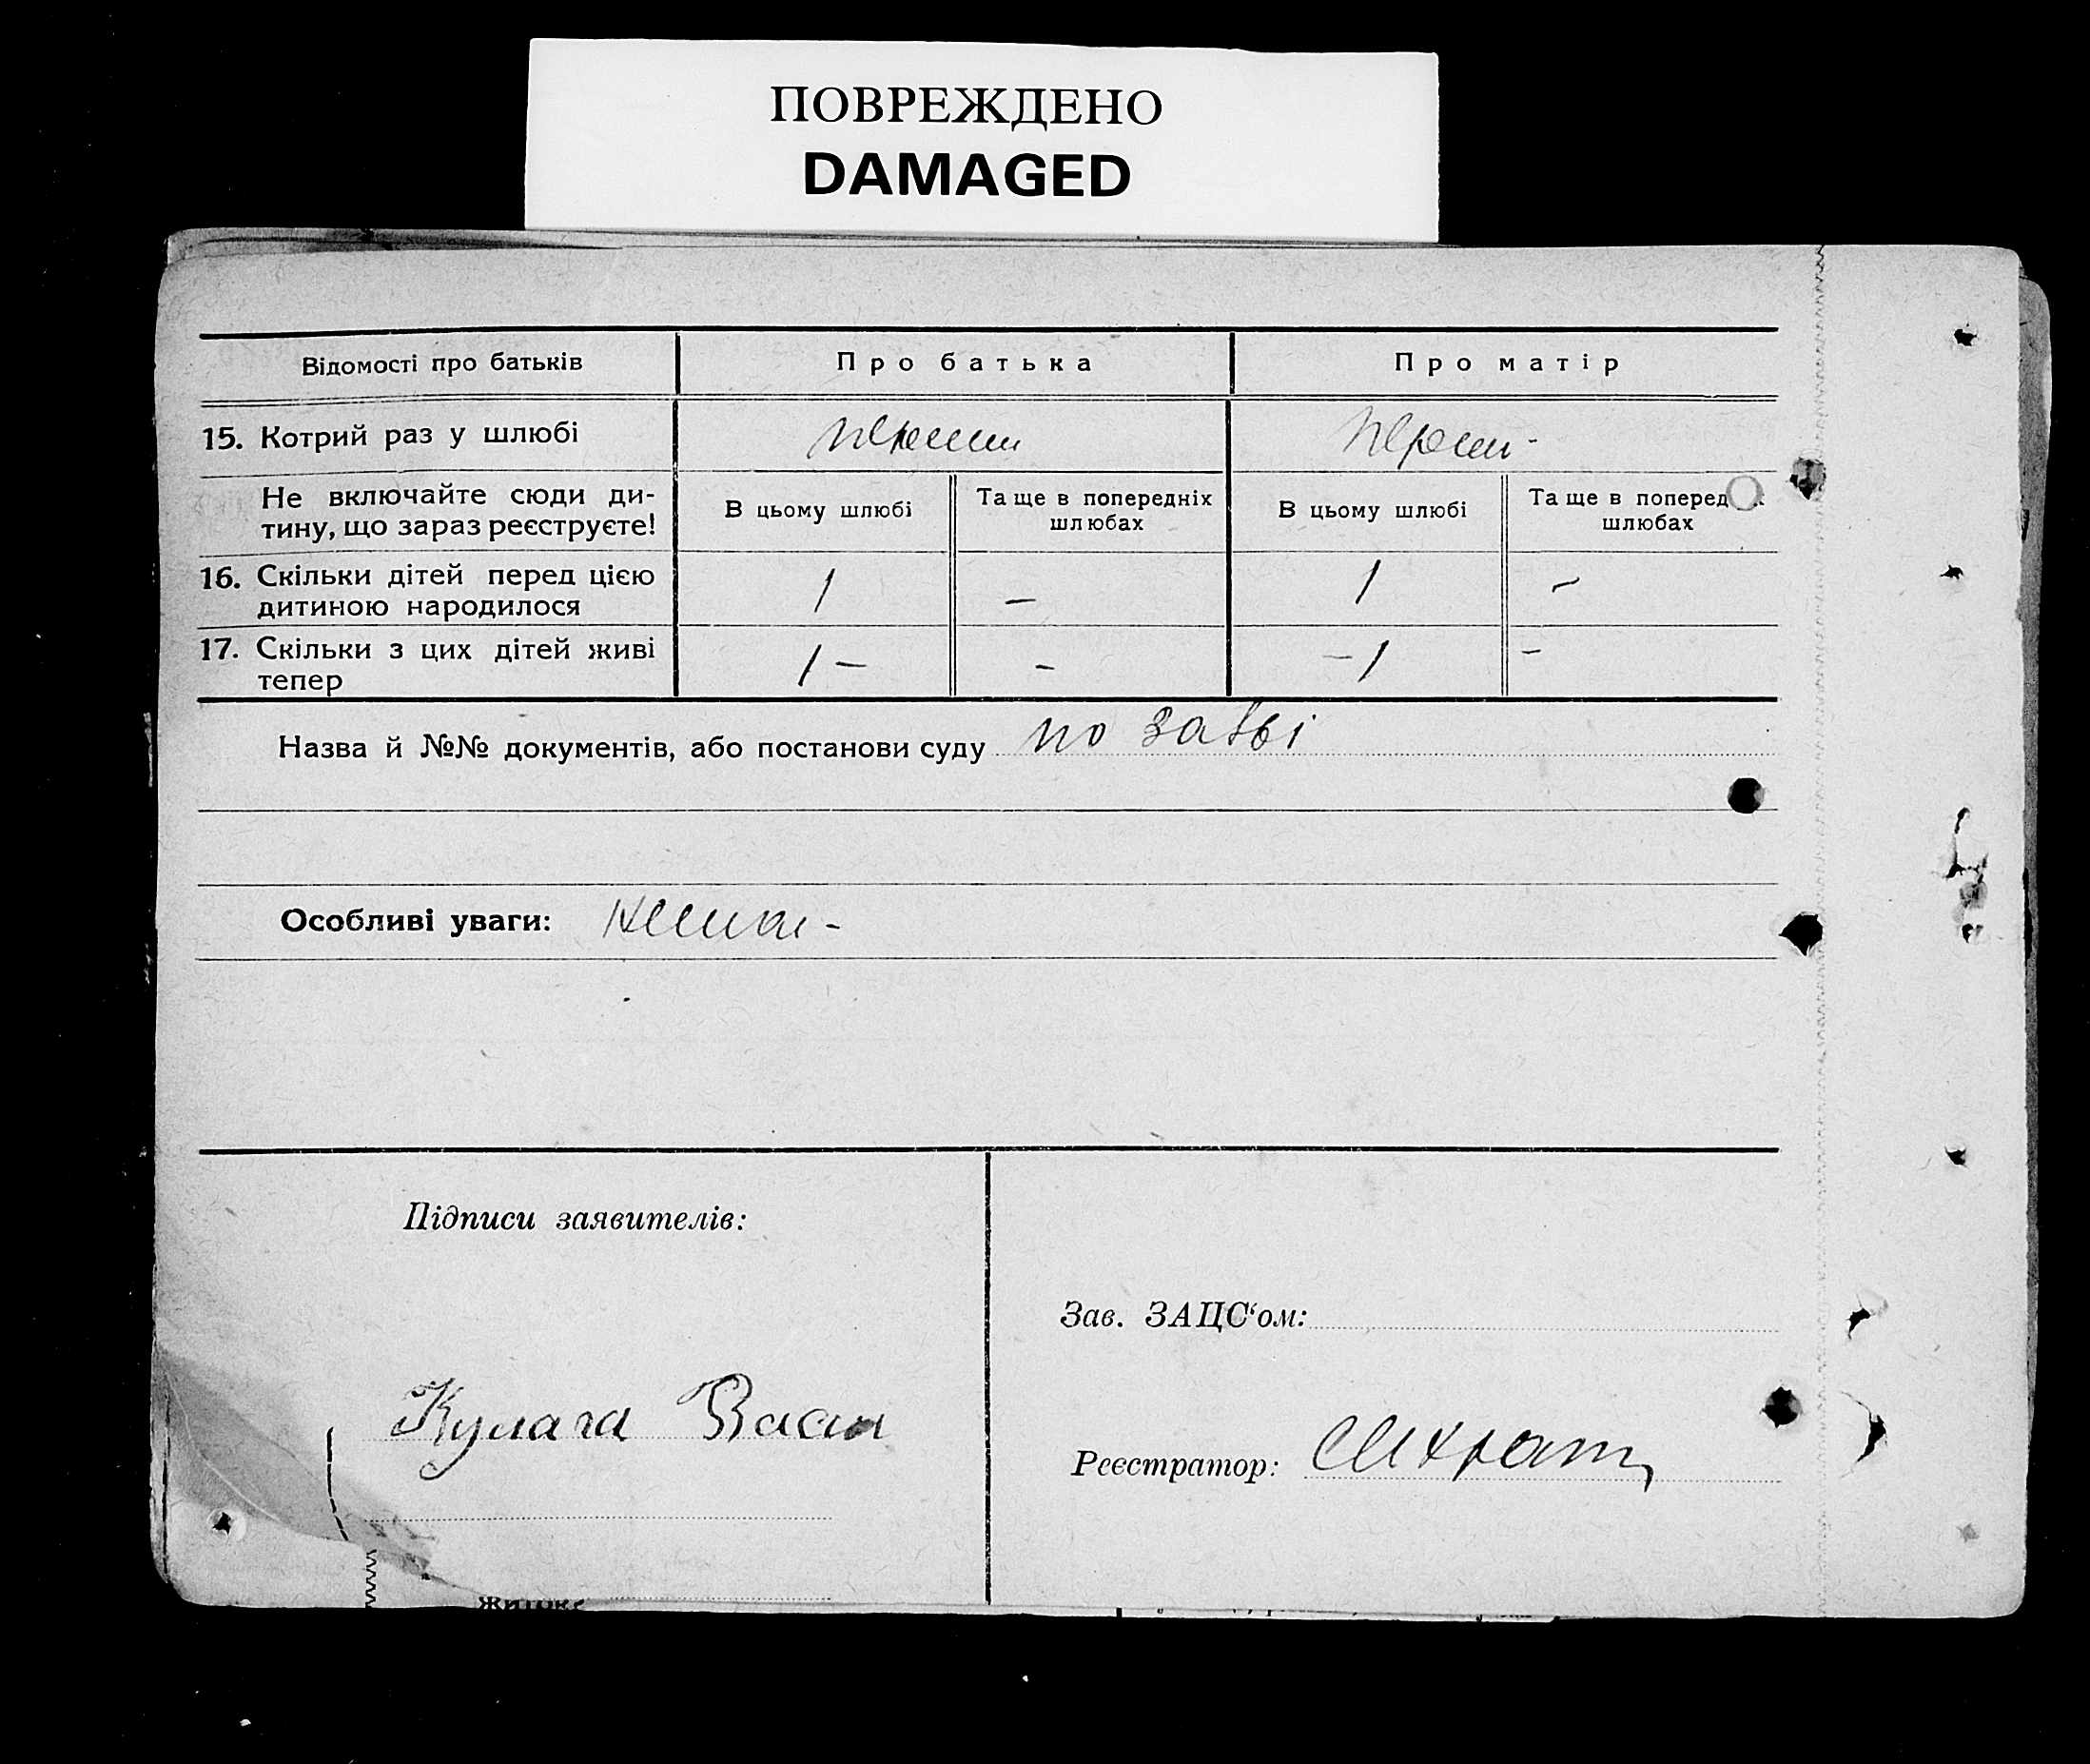 ПОВРЕЖДЕНО
DAMAGED
Відомості про батьків
Про батька
Про матір
15. Котрий раз у шлюбі
перший
перши -
Не включайте сюди ди-
тину, що зараз реєструєте!
В цьому шлюбі
Та ще в попередніх
шлюбах
В цьому шлюбі
Та ще в поперед
шлюбах
16. Скільки дітей перед цією
дитиною народилося
1
–
1
–
17. Скільки з цих дітей живі
тепер
1 –
–
– 1
–
Назва й №№ документів, або постанови суду по заяві
Особливі уваги: немає -
Підписи заявителів:
Зав. ЗАЦС‘ом:
Кулага Васил
Реєстратор: